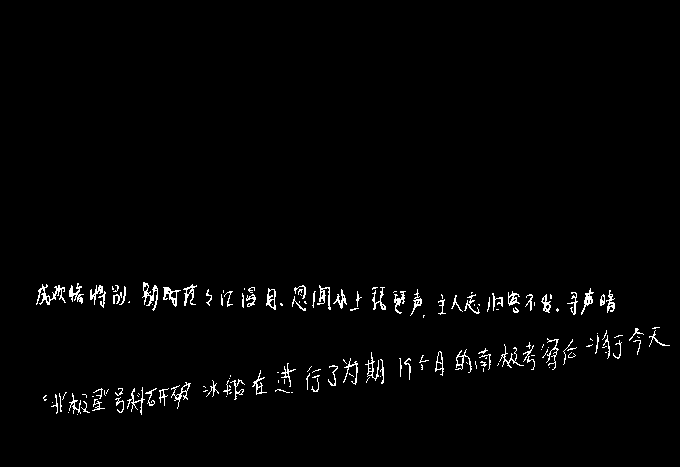 成欢惨将别.别时茫々江浸月.忽闻水上琵琶声,主人忘归客不发.寻声暗
“北极星”号科研破冰船在进行了为期19个月的南极考察后将于今天